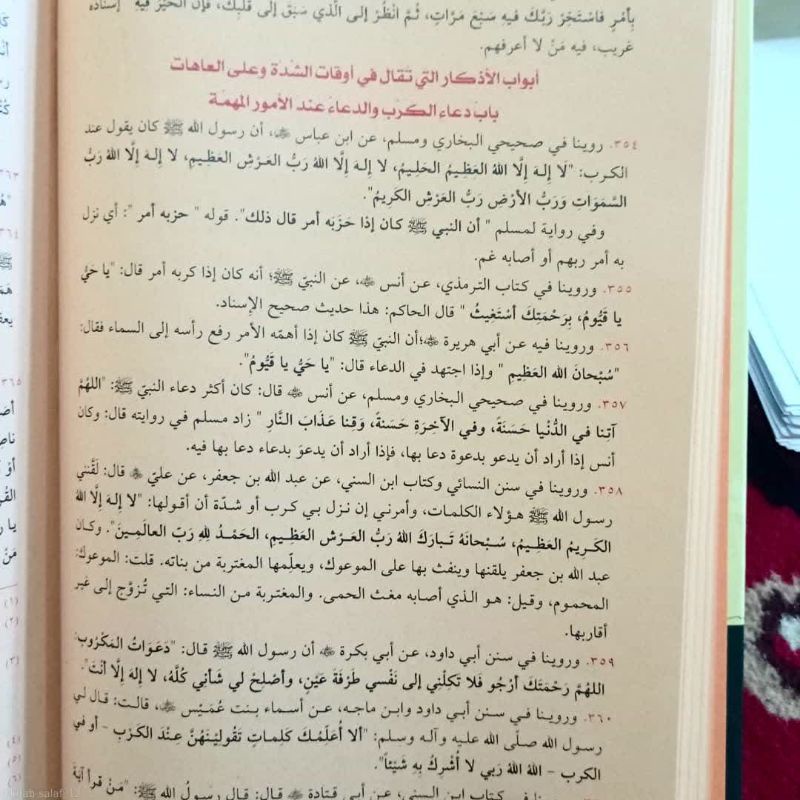 بِأَمْرٍ فَاسْتَخِرْ رَبَّكَ فِيهِ سَبْعَ مَرَّاتٍ، ثُمَّ انْظُرْ إلى الَّذي سَبَقَ إلى قَلْبِكَ، فَإِنَّ الخَيْرَ فِيهِ" إسناده
غريب، فيه مَنْ لا أعرفهم.
أبواب الأذكار التي تقال في أوقات الشدة وعلى العاهات
باب دعاء الكرب والدعاء عند الأمور المهمة
٣٥٤. روينا في صحيحي البخاري ومسلم، عن ابن عباس ﷺ، أن رسول الله ﷺ كان يقول عند
الكرب: "لَا إلـهَ إلَّا اللهُ العَظِيمُ الحَلِيمُ، لا إلـهَ إلَّا اللهُ رَبُّ العَرْشِ العَظِيمِ، لا إلـهَ إلَّا اللهُ رَبُّ
السَّمَوَاتِ وَرَبُّ الأَرْضِ رَبُّ العَرْشِ الكَرِيمُ".
وفي رواية لمسلم " أن النبي ﷺ كان إذا حَزَبَه أمر قال ذلك". قوله " حزبه أمر ": أي نزل
به أمر ربهم أو أصابه غم.
٣٥٥. وروينا في كتاب الترمذي، عن أنس، عن النبيّ ﷺ؛ أنه كان إذا كربه أمر قال: "يا حَيُّ
يا قَيُّومُ، بِرَحْمَتِكَ أَسْتَغِيثُ " قال الحاكم: هذا حديث صحيح الإسناد.
٣٥٦. وروينا فيه عن أبي هريرة؛أن النبيّ ﷺ كان إذا أهمّه الأمر رفع رأسه إلى السماء فقال:
"سُبْحانَ الله العَظِيمِ " وإذا اجتهد في الدعاء قال: "يا حَيُّ يا قَيُّومُ".
٣٥٧. وروينا في صحيحي البخاري ومسلم، عن أنس قال: كان أكثر دعاء النبيّ ﷺ: "اللهُمَّ
آتِنا في الدُّنْيا حَسَنَةً، وفي الآخِرَةِ حَسَنةً، وَقِنا عَذَابَ النَّارِ " زاد مسلم في روايته قال: وكان
أنس إذا أراد أن يدعو بدعوة دعا بها، فإذا أراد أن يدعوَ بدعاء دعا بها فيه.
٣٥٨. وروينا في سنن النسائي وكتاب ابن السني، عن عبد الله بن جعفر، عن عليّ قال: لَقَّنَني
رسول الله ﷺ هـؤلاء الكلمات، وأمرني إن نزل بي كرب أو شدّة أن أقولها: "لا إلـهَ إلَّا اللهُ
الكَرِيمُ العَظِيمُ، سُبْحانَهُ تَبارَكَ اللهُ رَبُّ العَرْشِ العَظِيمِ، الحَمْدُ للهِ رَبّ العالَمِينَ". وكان
عبد الله بن جعفر يلقنها وينفث بها على الموعوك، ويعلِّمها المغتربة من بناته. قلت: الموعوك:
المحموم، وقيل: هو الذي أصابه مغث الحمى. والمغتربة من النساء: التي تُزوَّج إلى غير
أقاربها.
٣٥٩. وروينا في سنن أبي داود، عن أبي بكرة أن رسول الله ﷺ قال: "دَعَوَاتُ المَكْرُوبِ:
اللهُمَّ رَحْمَتَكَ أَرْجُو فَلا تَكِلْنِي إلى نَفْسي طَرْفَةَ عَيْنٍ، وأصْلِحْ لي شَأنِي كُلَّهُ، لا إِلهَ إلَّا أَنْتَ".
٣٦٠. وروينا في سنن أبي داود وابن ماجه، عن أسماء بنت عُمَيْسٍ، قالت: قال لي
رسول الله صلّى الله عليه وآله وسلم: "ألا أُعَلِّمُكِ كَلِماتٍ تَقُولِيْنَهُنَّ عِنْدَ الكَرْبِ – أو في
الكرب – اللهُ اللهُ رَبي لا أُشْرِكُ بِهِ شَيْئاً".
وروينا في كتاب ابن السني، عن أبي قتادة قال: قال رسولُ الله ﷺ: "مَنْ قرأ آيَةَ